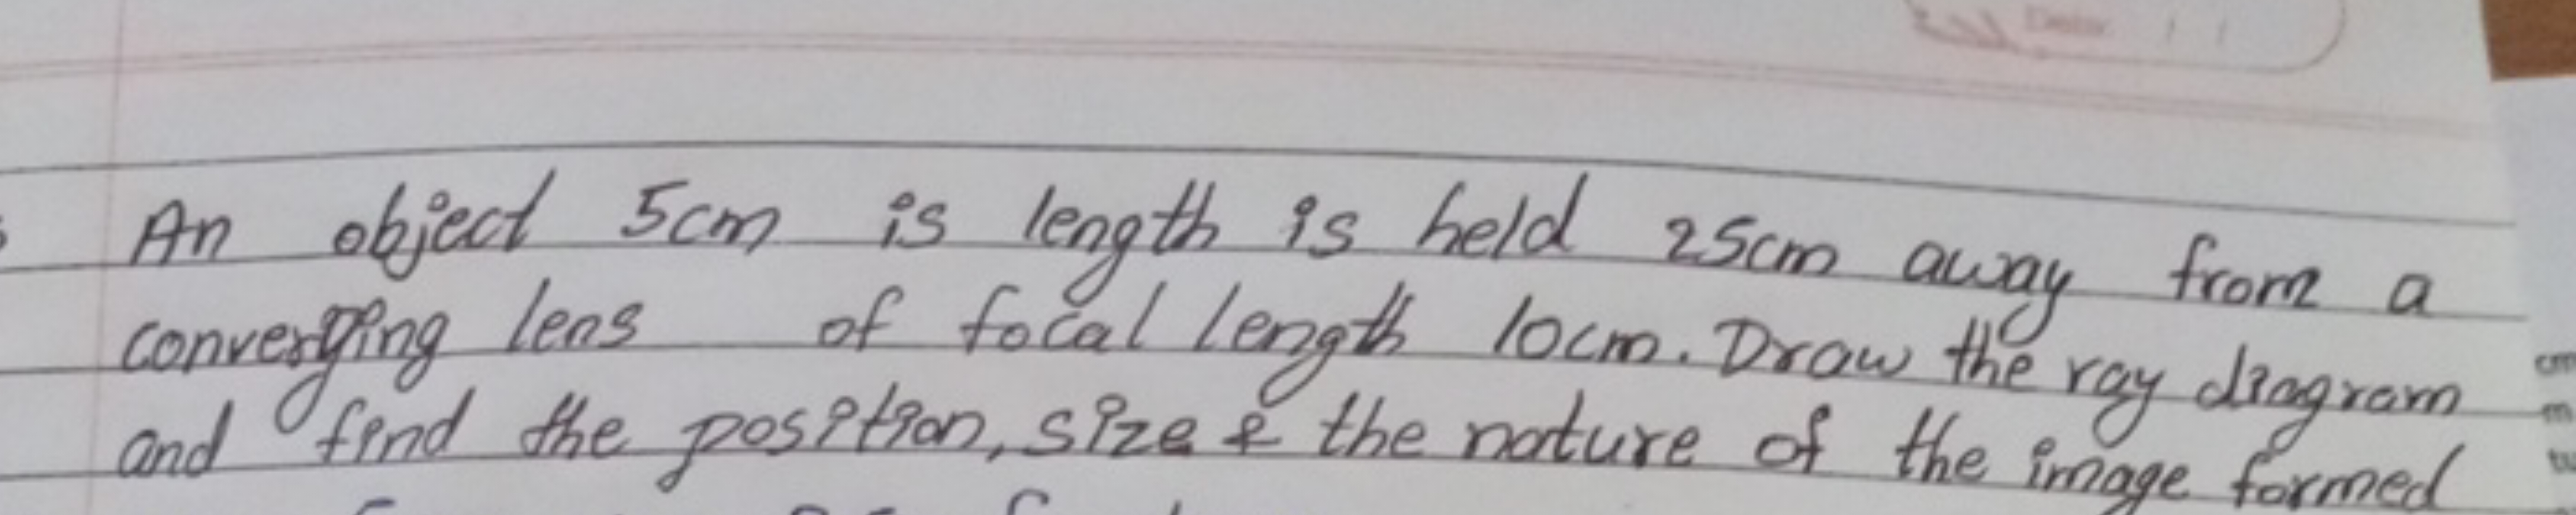 Date / /
An object 5cm is length is held 25cm away from a
converging lens of focal length 10cm. Draw the ray diagram
and find the position, size & the nature of the image formed
cm
m